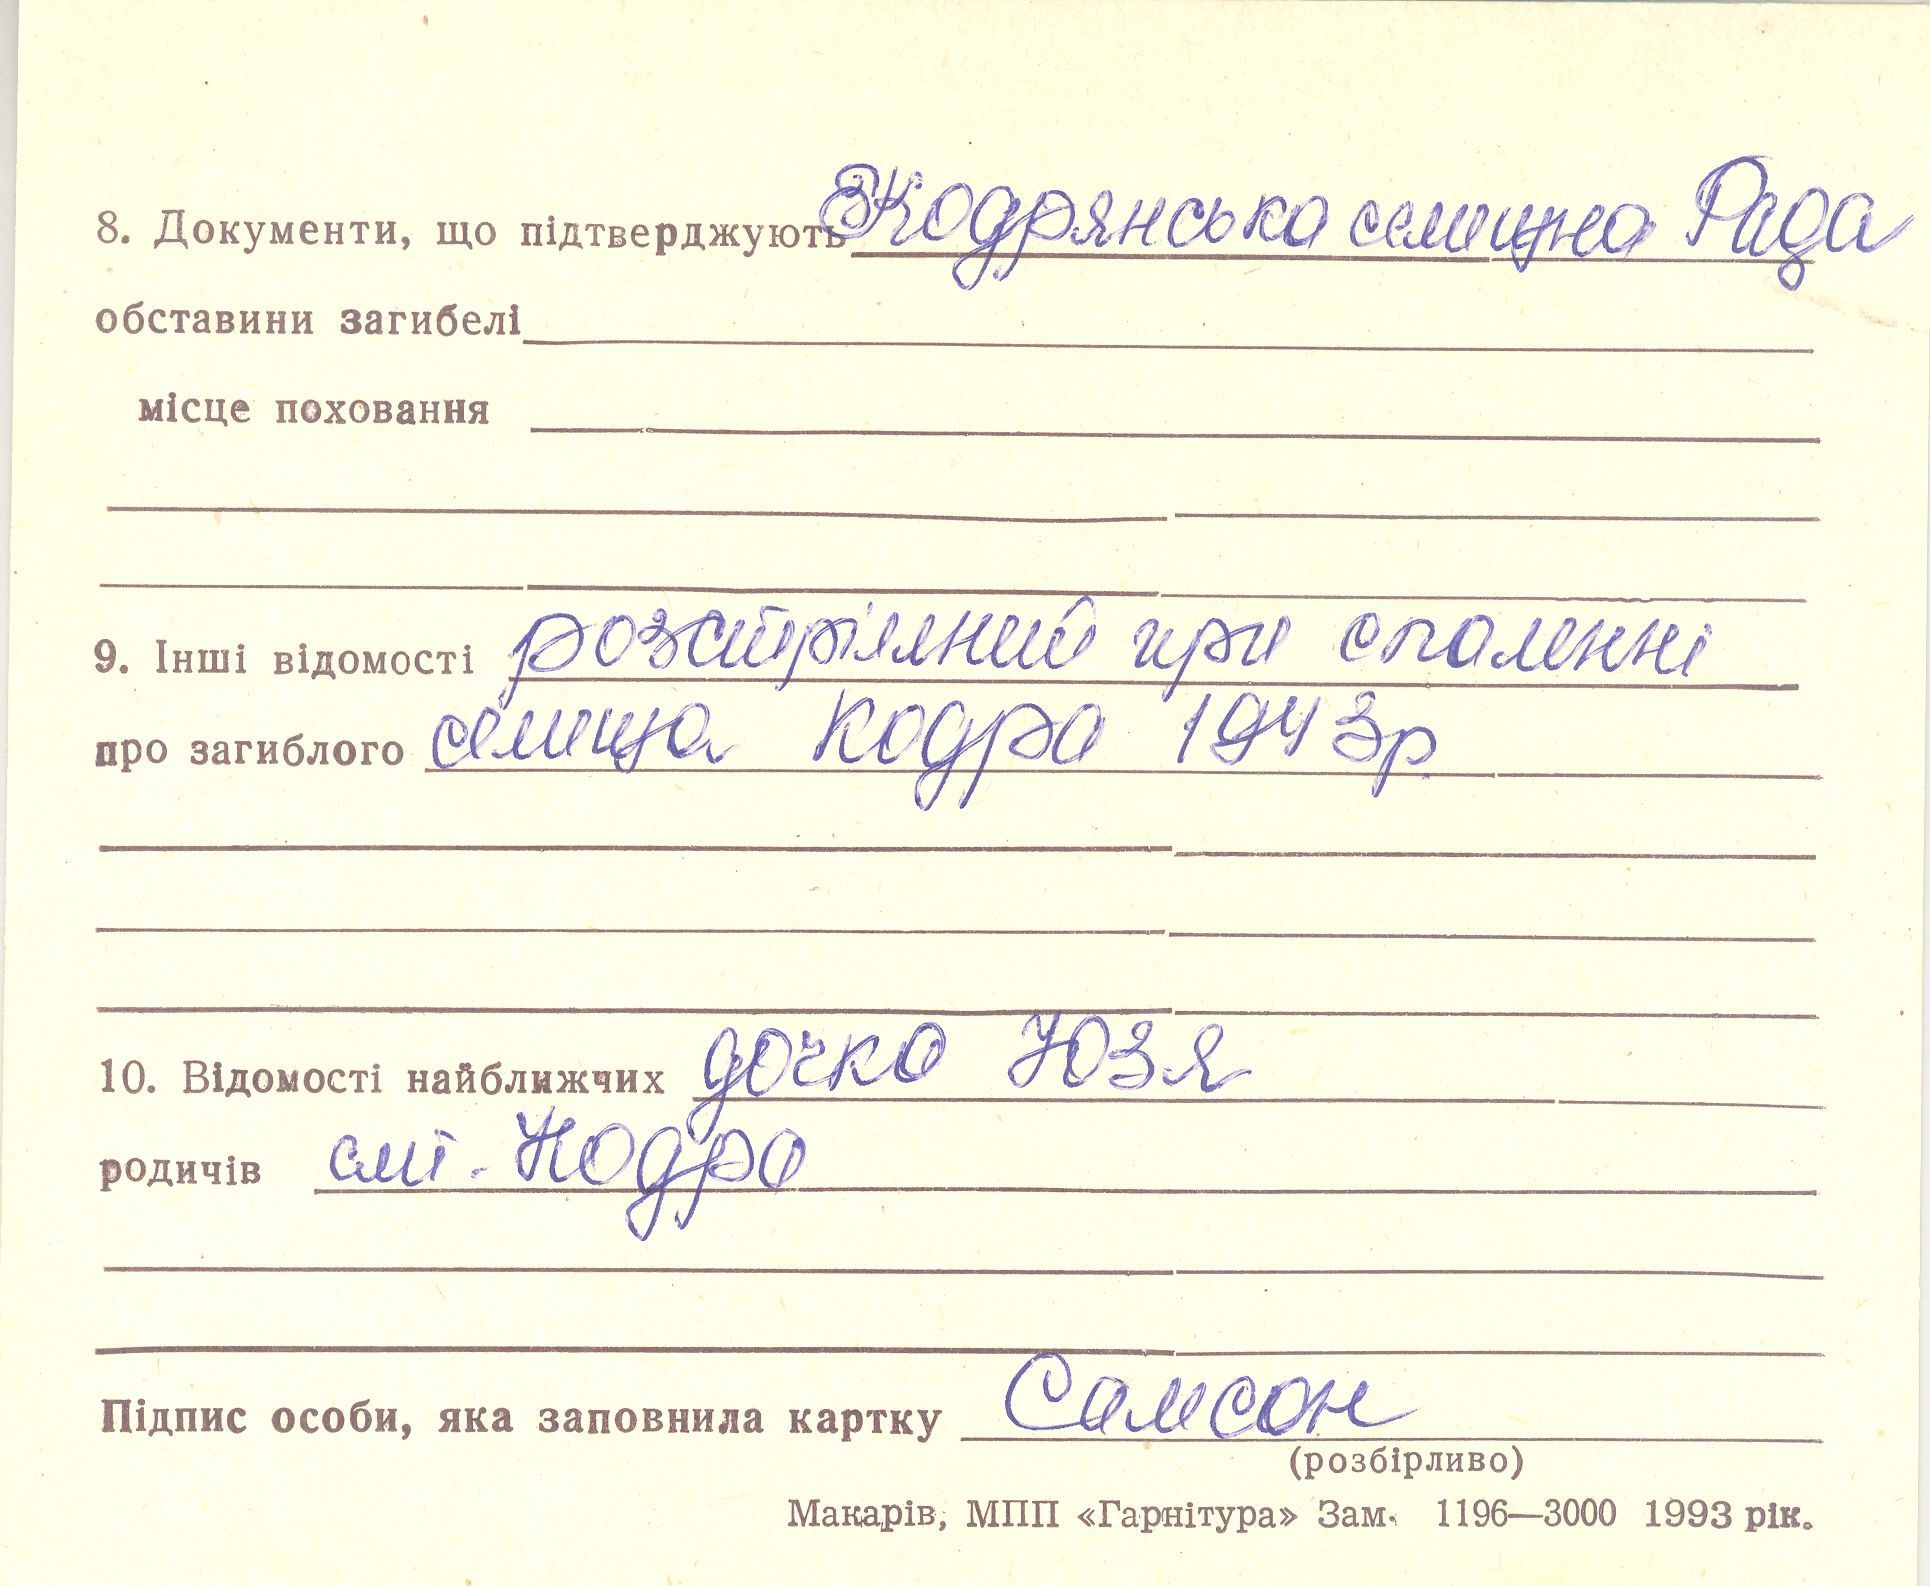 8. Документи, що підтверджують Кодрянська селищна Рада
обставини загибелі
місце поховання
9. Інші відомості розстріляний при спаленні
про загиблого селища Кодра 1943р
10. Відомості найближчих дочка Юзя
родичів смт. Кодра
Підпис особи, яка заповнила картку Самсон
(розбірливо)
Макарів, МПП «Гарнітура» Зам. 1196—3000 1993 рік.